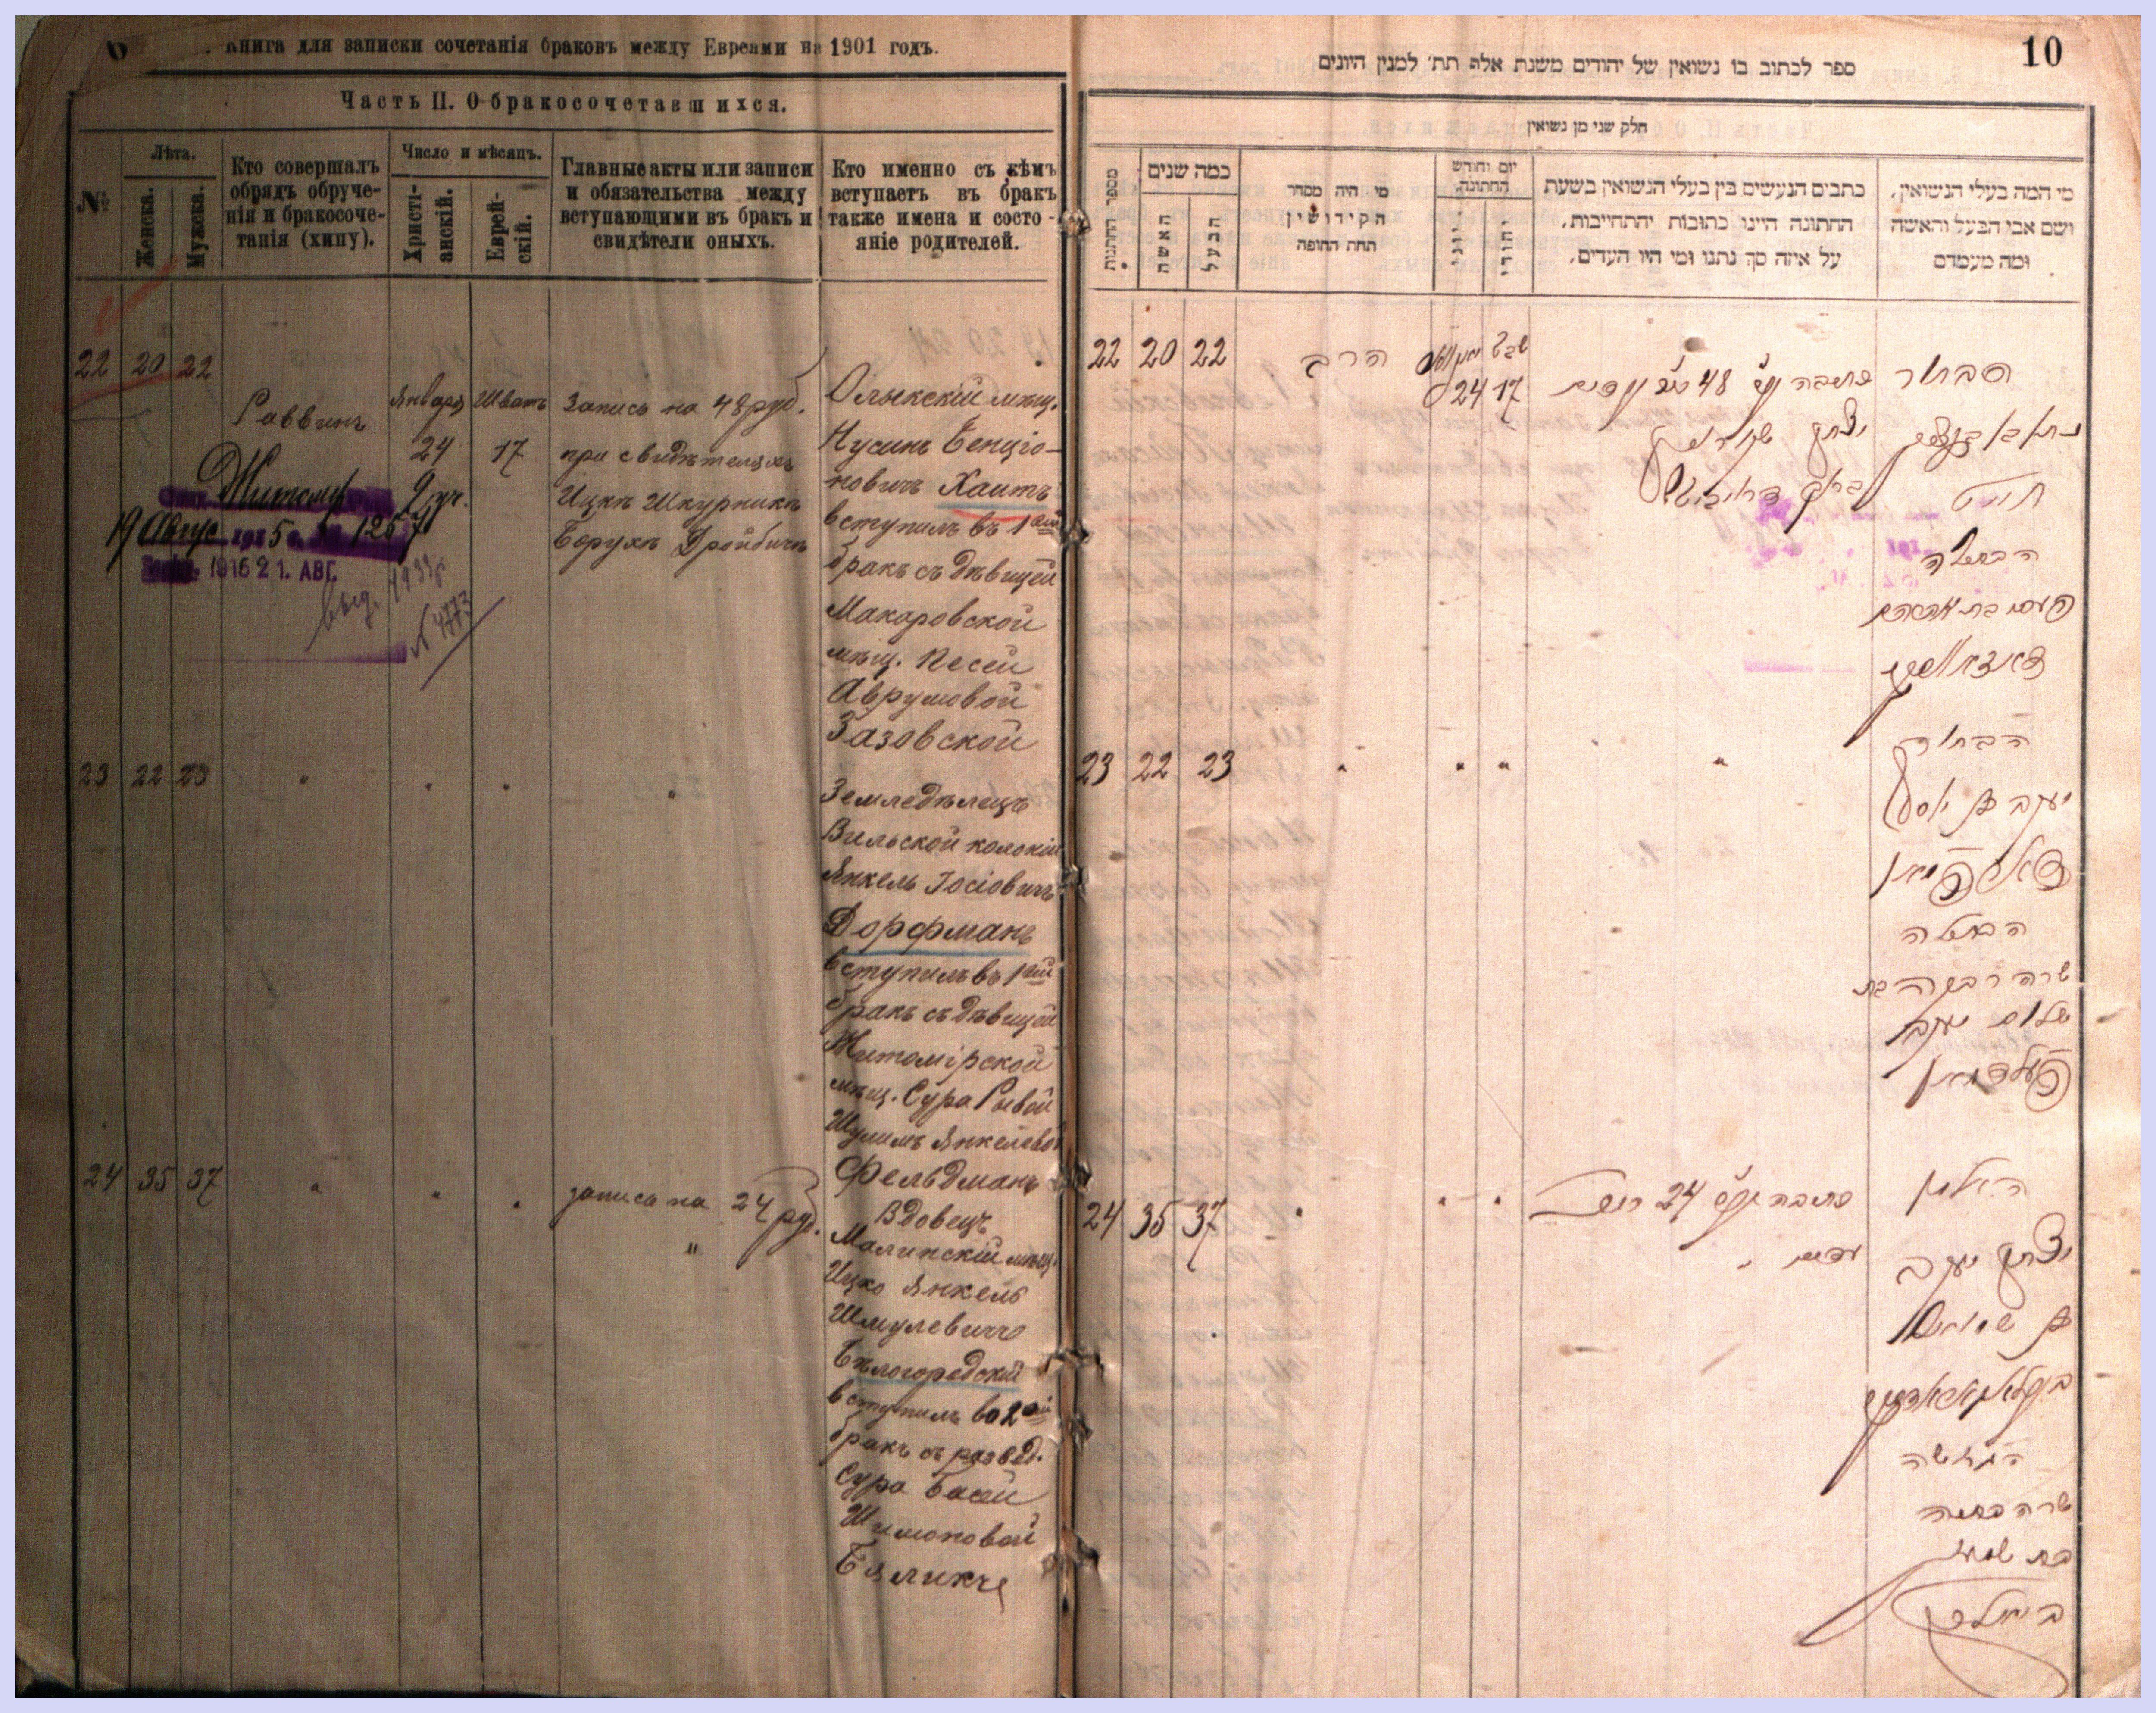 Книга для записки сочетанія браковъ между Евреями на 1901 годъ.
Часть II. О бракосочетавшихся.
№
Лѣта.
Женска.
Мужска.
Кто совершалъ
обрядъ обруче-
нія и бракосоче-
танія (хипу).
Число и мѣсяцъ.
Христі-
анскій.
Еврей-
скій.
Главные акты или записи
и обязательства между
вступающими въ бракъ и
свидѣтели оныхъ.
Кто именно съ кѣмъ
вступаетъ въ бракъ
также имена и состо-
яніе родителей.
22 20 22
Раввинъ
Января
24
Шватъ
17
Запись на 48 руб.
при свидѣтеляхъ
Ицкъ Шкурникъ
Борухъ Дройбичъ
Олыкскій мѣщ.
Нусинъ Бенціо-
новичъ Хаитъ
вступилъ въ 1ый
бракъ съ дѣвицей
Макаровской
мѣщ. Песей
Аврумовой
Газовской
19 Авгус 1915 г. № 1257
1915 21. АВГ.
выд.
№ 4773
23 22 23
" " " "
Земледѣлецъ
Вильской колоніи
Янкель Іосіовичъ
Дорфманъ
вступилъ въ 1ый
бракъ съ дѣвицей
Житомірской
мѣщ. Сура Ривой
Шулимъ Янкелевой
Фельдманъ
24 35 37
" " "
запись на 24 руб.
"
Вдовецъ
Малинскій мѣщ.
Ицко Янкель
Шмулевичъ
Бѣлогородскій
вступилъ во 2ой
бракъ съ развед.
Сура Басей
Шимоновой
Бяликъ
10
ספר לכתוב בו נשואין של יהודים משנת אלף תת׳ למנין היונים
חלק שני מן נשואין
מספר החתונות
כמה שנים
האשה
הבעל
מי היה מסדר
הקידושין
תחת החופה
יום וחודש
החתונה
יוני
יהודי
כתבים הנעשים בין בעלי הנשואין בשעת
החתונה היינו כתובות והתחייבות,
על איזה סך נתנו ומי היו העדים,
מי המה בעלי הנשואין,
ושם אבי הבעל והאשה
ומה מעמדם
22 20 22
הרב
24
שבט
17
כתובה 48
יצחק
הבחור
חייט
הבתולה
23 22 23
" " " "
הבחור
יעקב בן יוסף
דארפמאן
הבתולה
שרה רבקה בת
שלום יעקב
פעלדמאן
24 35 37
" " "
כתובה 24
האלמן
יצחק יעקב
בן שמואל
הגרושה
שרה בתיה
בת שמעון
ביאליק